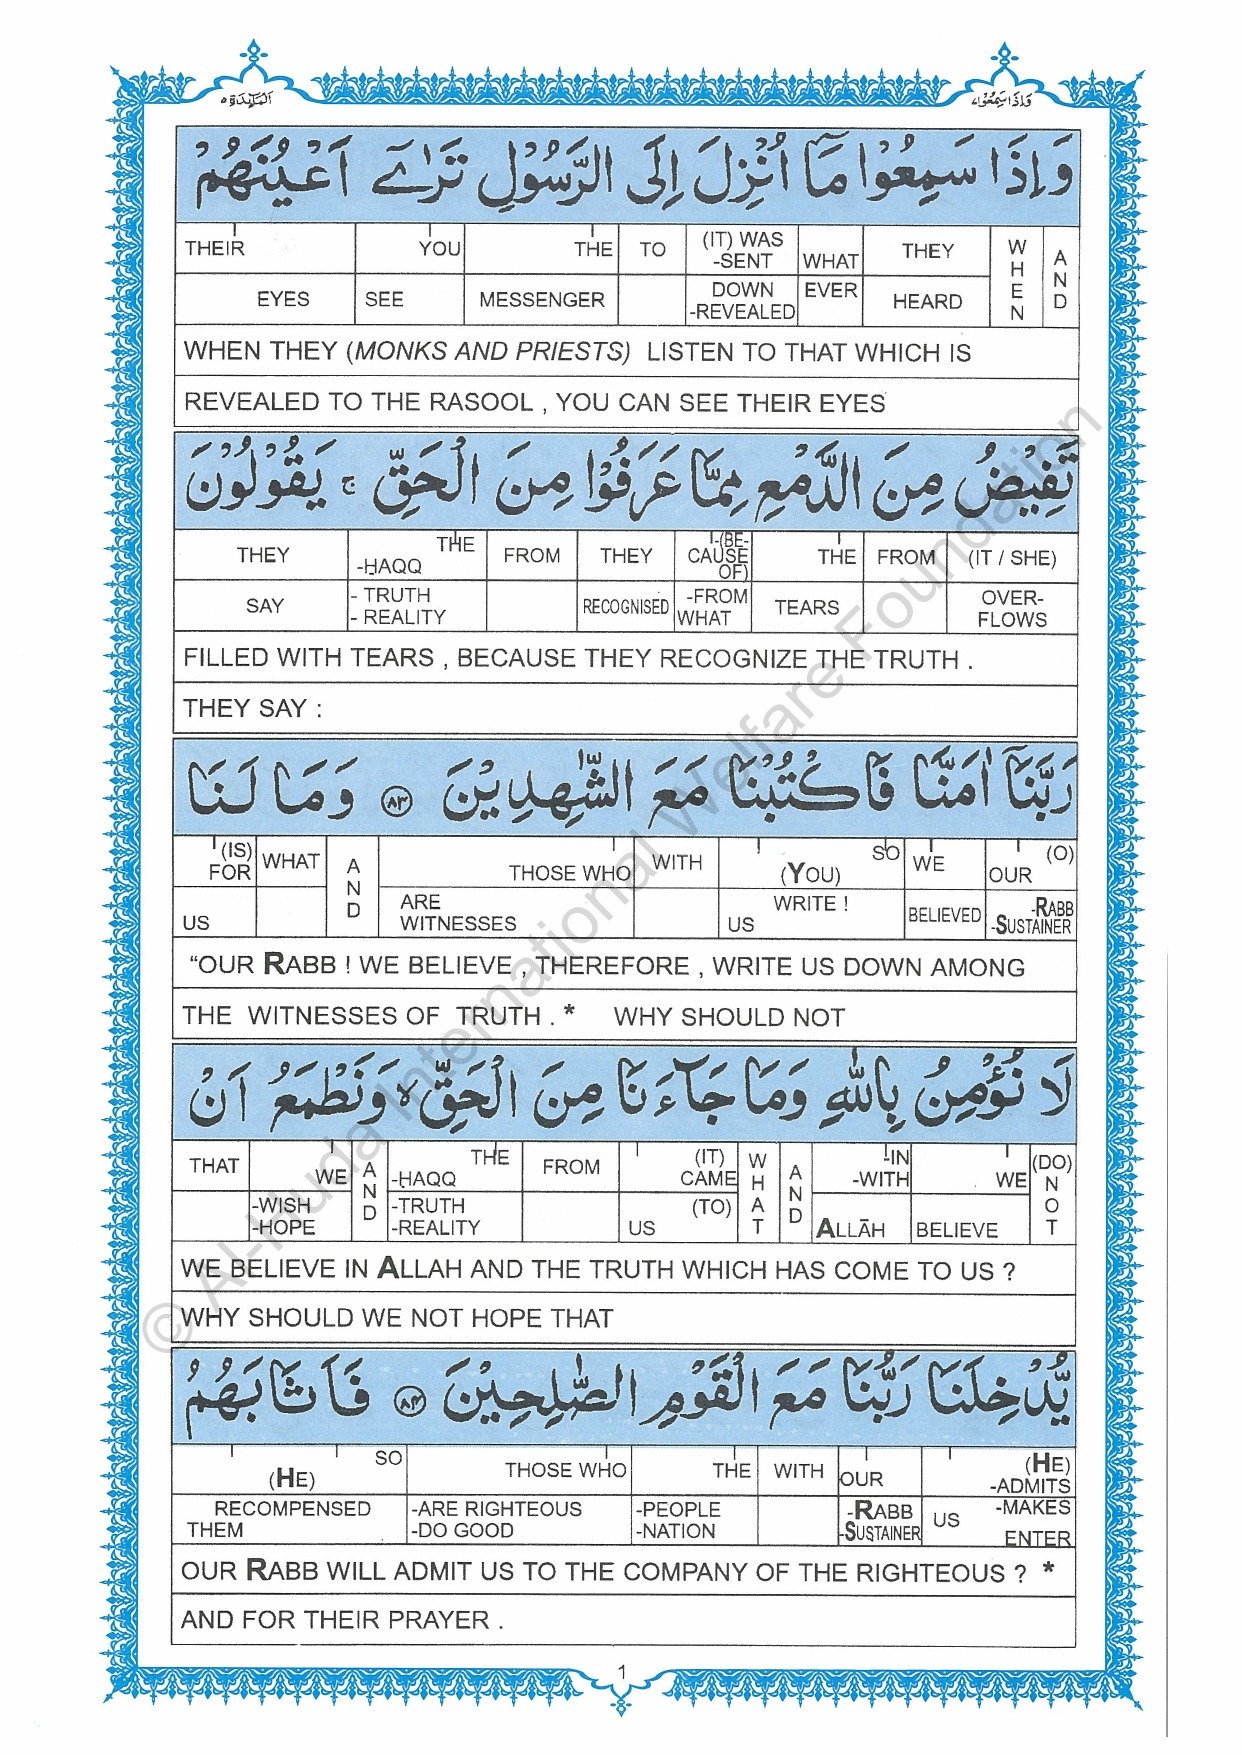 المآئدة ٥
وَاِذَا سَمِعُوْا ٧
وَاِذَا سَمِعُوْا مَاۤ اُنْزِلَ اِلَى الرَّسُوْلِ تَرٰۤى اَعْيُنَهُمْ
THEIR YOU THE TO (IT) WAS -SENT WHAT THEY WHEN AND
EYES SEE MESSENGER DOWN -REVEALED EVER HEARD
WHEN THEY (MONKS AND PRIESTS) LISTEN TO THAT WHICH IS
REVEALED TO THE RASOOL , YOU CAN SEE THEIR EYES
تَفِيْضُ مِنَ الدَّمْعِ مِمَّا عَرَفُوْا مِنَ الْحَقِّ ۚ يَقُوْلُوْنَ
THEY THE -HAQQ FROM THEY -(BE-CAUSE OF) THE FROM (IT / SHE)
SAY - TRUTH - REALITY RECOGNISED -FROM WHAT TEARS OVER-FLOWS
FILLED WITH TEARS , BECAUSE THEY RECOGNIZE THE TRUTH .
THEY SAY :
رَبَّنَاۤ اٰمَنَّا فَاكْتُبْنَا مَعَ الشّٰهِدِيْنَ ۝٨٣ وَمَا لَنَا
(IS) FOR WHAT AND THOSE WHO WITH SO (YOU) WE (O) OUR
US ARE WITNESSES WRITE ! US BELIEVED -RABB -SUSTAINER
“OUR RABB ! WE BELIEVE , THEREFORE , WRITE US DOWN AMONG
THE WITNESSES OF TRUTH . * WHY SHOULD NOT
لَا نُؤْمِنُ بِاللّٰهِ وَمَا جَآءَنَا مِنَ الْحَقِّ ۙ وَنَطْمَعُ اَنْ
THAT WE AND THE -HAQQ FROM (IT) CAME WHAT AND -IN -WITH WE (DO) NOT
-WISH -HOPE -TRUTH -REALITY (TO) US ALLĀH BELIEVE
WE BELIEVE IN ALLAH AND THE TRUTH WHICH HAS COME TO US ?
WHY SHOULD WE NOT HOPE THAT
يُّدْخِلَنَا رَبُّنَا مَعَ الْقَوْمِ الصّٰلِحِيْنَ ۝٨٤ فَاَثَابَهُمُ
SO (HE) THOSE WHO THE WITH OUR (HE) -ADMITS
RECOMPENSED THEM -ARE RIGHTEOUS -DO GOOD -PEOPLE -NATION -RABB -SUSTAINER US -MAKES ENTER
OUR RABB WILL ADMIT US TO THE COMPANY OF THE RIGHTEOUS ? *
AND FOR THEIR PRAYER .
1
© Al-Huda International Welfare Foundation